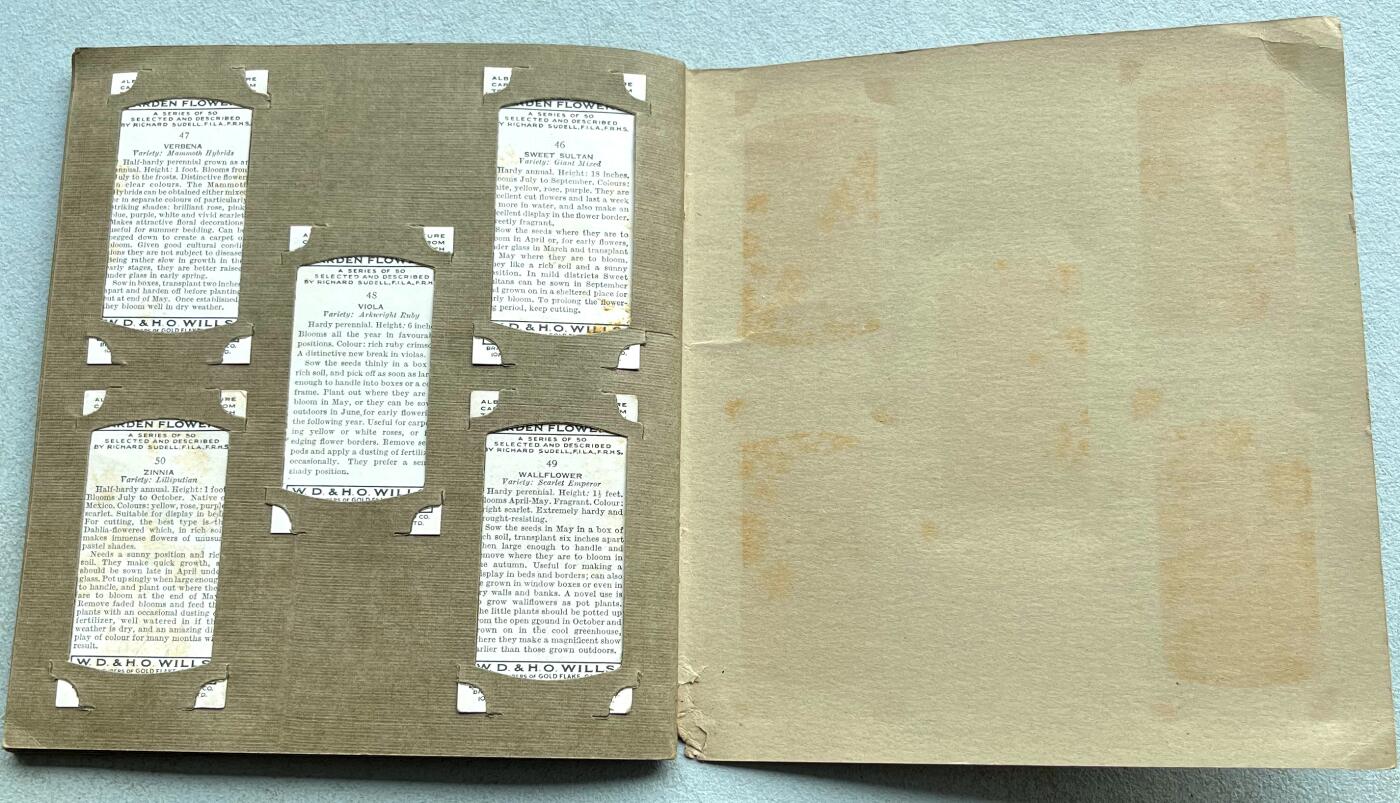 ALB RE
CA M
RDEN FLOWE
A SERIES OF 50
SELECTED AND DESCRIBED
BY RICHARD SUDELL, F.I.L.A., F.R.H.S.
47
VERBENA
Variety: Mammoth Hybrids
Half-hardy perennial grown as an
annual. Height: 1 foot. Blooms from
July to the frosts. Distinctive flower
in clear colours. The Mammoth
Hybrids can be obtained either mixed
or in separate colours of particularly
striking shades: brilliant rose, pink
blue, purple, white and vivid scarlet
Makes attractive floral decorations
useful for summer bedding. Can be
pegged down to create a carpet o
bloom. Given good cultural condi
ions they are not subject to disease
Being rather slow in growth in the
early stages, they are better raised
under glass in early spring.
Sow in boxes, transplant two inches
apart and harden off before planting
out at end of May. Once established
they bloom well in dry weather.
W. D. & H. O. WILLS
ALB RE
CA OM
RDEN FLOWE
A SERIES OF 50
SELECTED AND DESCRIBED
Y RICHARD SUDELL, F.I.L.A., F.R.H.S.
46
SWEET SULTAN
Variety: Giant Mixed
Hardy annual. Height: 18 inches.
ooms July to September. Colours:
hite, yellow, rose, purple. They are
cellent cut flowers and last a week
more in water, and also make an
cellent display in the flower border.
eetly fragrant.
Sow the seeds where they are to
oom in April or, for early flowers,
der glass in March and transplant
May where they are to bloom.
ey like a rich soil and a sunny
sition. In mild districts Sweet
ltans can be sown in September
d grown on in a sheltered place for
rly bloom. To prolong the flower-
g period, keep cutting.
W. D. & H. O. WILLS
AL URE
CA OM
RDEN FLOWE
A SERIES OF 50
SELECTED AND DESCRIBED
BY RICHARD SUDELL, F.I.L.A., F.R.
48
VIOLA
Variety: Arkwright Ruby
Hardy perennial. Height: 6 inche
Blooms all the year in favourab
positions. Colour: rich ruby crimso
A distinctive new break in violas.
Sow the seeds thinly in a box
rich soil, and pick off as soon as lar
enough to handle into boxes or a co
frame. Plant out where they are
bloom in May, or they can be so
outdoors in June, for early floweri
the following year. Useful for carpe
ing yellow or white roses, or
edging flower borders. Remove se
pods and apply a dusting of fertiliz
occasionally. They prefer a sem
shady position.
W. D. & H. O. WILL
CO.
TD.
AL URE
CA M
RDEN FLOWE
A SERIES OF 50
SELECTED AND DESCRIBED
BY RICHARD SUDELL, F.I.L.A., F.R.H.S.
50
ZINNIA
Variety: Lilliputian
Half-hardy annual. Height: 1 foot
Blooms July to October. Native o
Mexico. Colours: yellow, rose, purple
scarlet. Suitable for display in bed
For cutting, the best type is th
Dahlia-flowered which, in rich soi
makes immense flowers of unusua
pastel shades.
Needs a sunny position and ric
soil. They make quick growth, s
should be sown late in April unde
glass. Pot up singly when large enoug
to handle, and plant out where the
are to bloom at the end of May
Remove faded blooms and feed th
plants with an occasional dusting o
fertilizer, well watered in if th
weather is dry, and an amazing di
play of colour for many months wi
result.
W. D. & H. O. WILLS
ERS OF GOLD FLAKE
CO.
D.
ALB RE
CA OM
RDEN FLOWE
A SERIES OF 50
SELECTED AND DESCRIBED
BY RICHARD SUDELL, F.I.L.A., F.R.H.S.
49
WALLFLOWER
Variety: Scarlet Emperor
Hardy perennial. Height: 1½ feet.
looms April-May. Fragrant. Colour:
right scarlet. Extremely hardy and
rought-resisting.
Sow the seeds in May in a box of
ch soil, transplant six inches apart
hen large enough to handle and
emove where they are to bloom in
he autumn. Useful for making a
isplay in beds and borders; can also
e grown in window boxes or even in
ry walls and banks. A novel use is
o grow wallflowers as pot plants.
he little plants should be potted up
om the open ground in October and
rown on in the cool greenhouse,
here they make a magnificent show
arlier than those grown outdoors.
W. D. & H. O. WILLS
ERS OF GOLD FLAKE